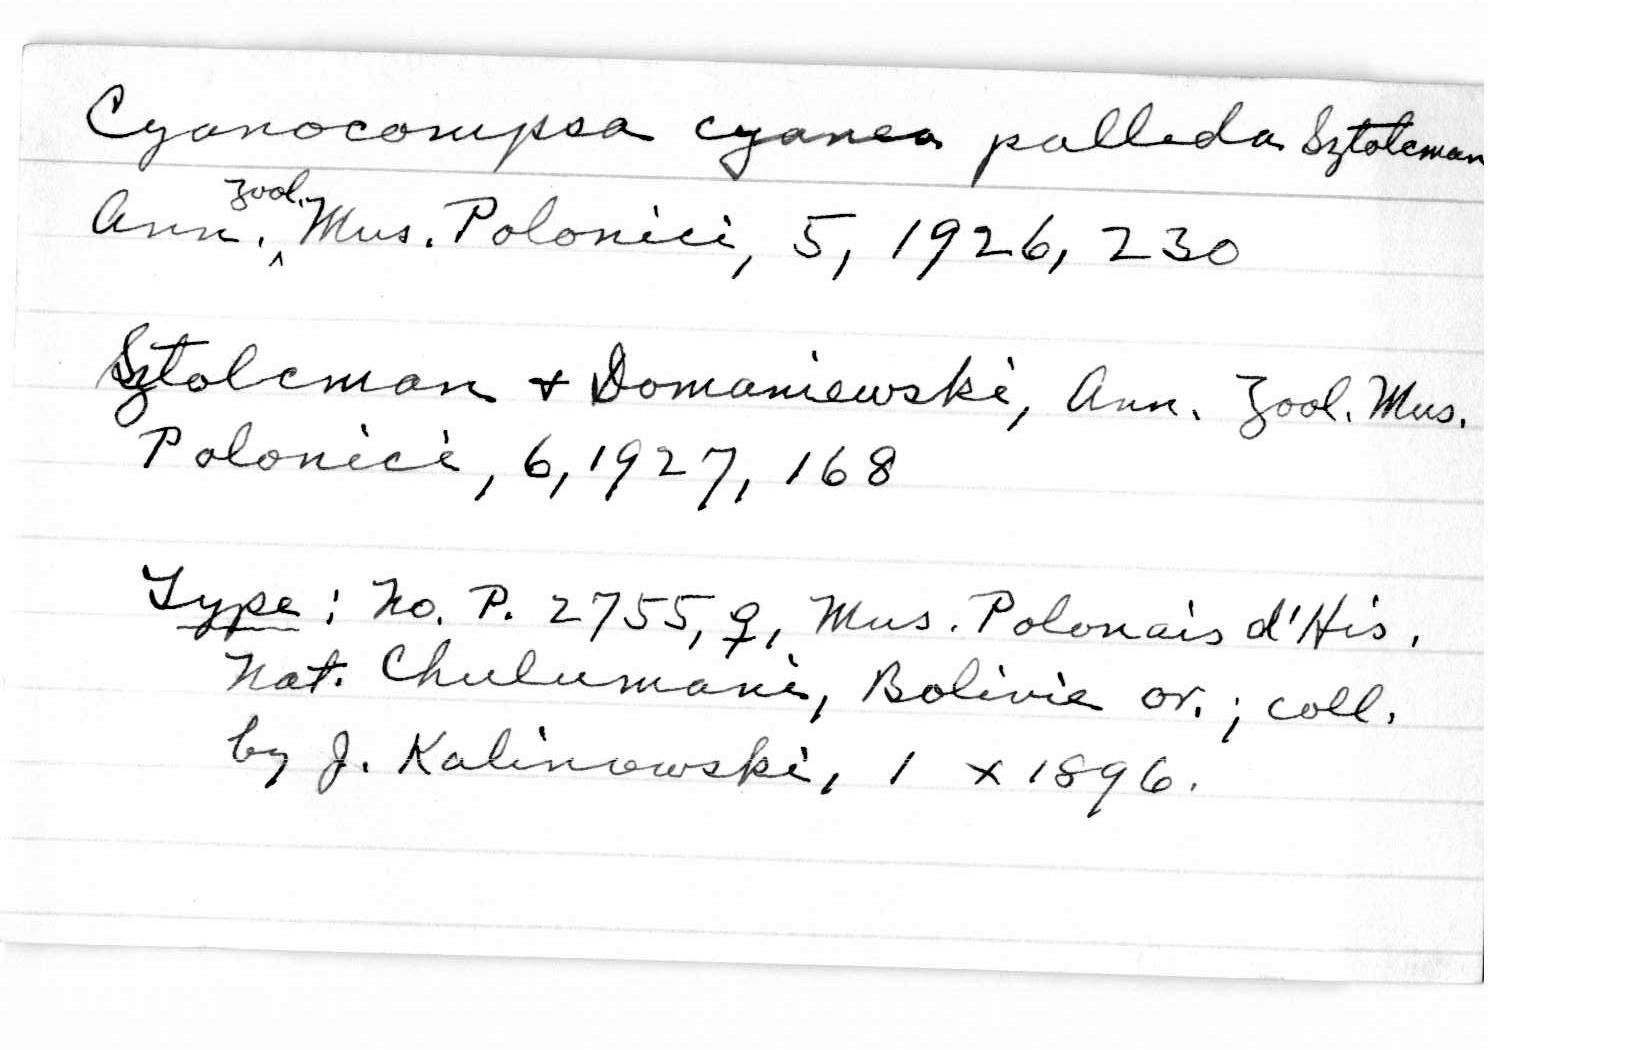 Cyanocompsa cyanea pallida Sztolcman
Ann. Zool. Mus. Polonici, 5, 1926, 230
Sztolcman + Domaniewski, Ann. Zool. Mus.
Polonici, 6, 1927, 168
Type: No. P. 2755, ♀, Mus. Polonais d'His.
Nat. Chulumani, Bolivie or.; coll.
by J. Kalinowski, 1 x 1896.